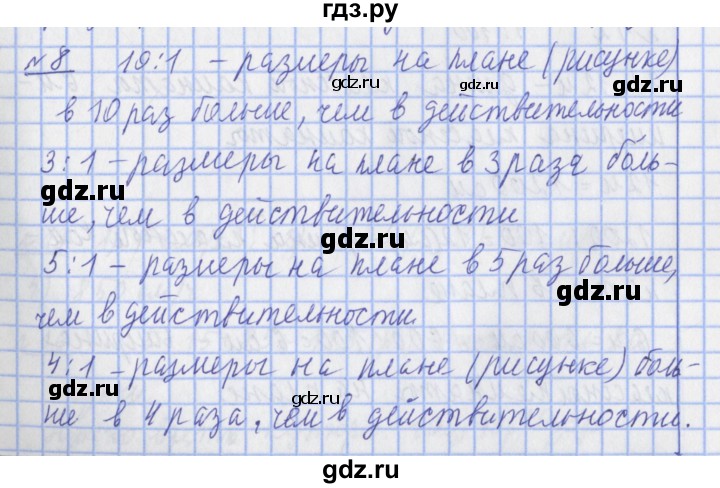 гдз.ру
№8 10:1 – размеры на плане (рисунке)
gdz.ru gdz.ru
в 10 раз больше, чем в действительности
3:1 – размеры на плане в 3 раза боль-
gdz.ru gdz.ru
ше, чем в действительности
gdz.ru
5:1 – размеры на плане в 5 раз больше,
gdz.ru
чем в действительности.
4:1 – размеры на плане (рисунке) боль-
gdz.ru gdz.ru
ше в 4 раза, чем в действительности.
gdz.ru
gdz.ru